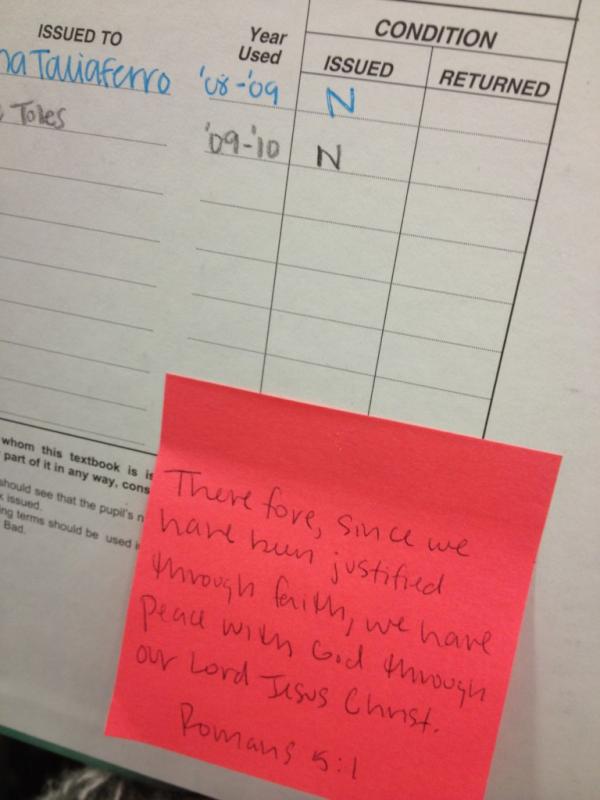 ISSUED TO
Year
Used
CONDITION
ISSUED
RETURNED
na Taliaferro '08-'09 N
Toles '09-'10 N
whom this textbook is is
part of it in any way, cons
should see that the pupil's n
issued.
ing terms should be used i
Bad.
There fore, since we
have been justified
through faith, we have
peace with God through
our Lord Jesus Christ.
Romans 5:1